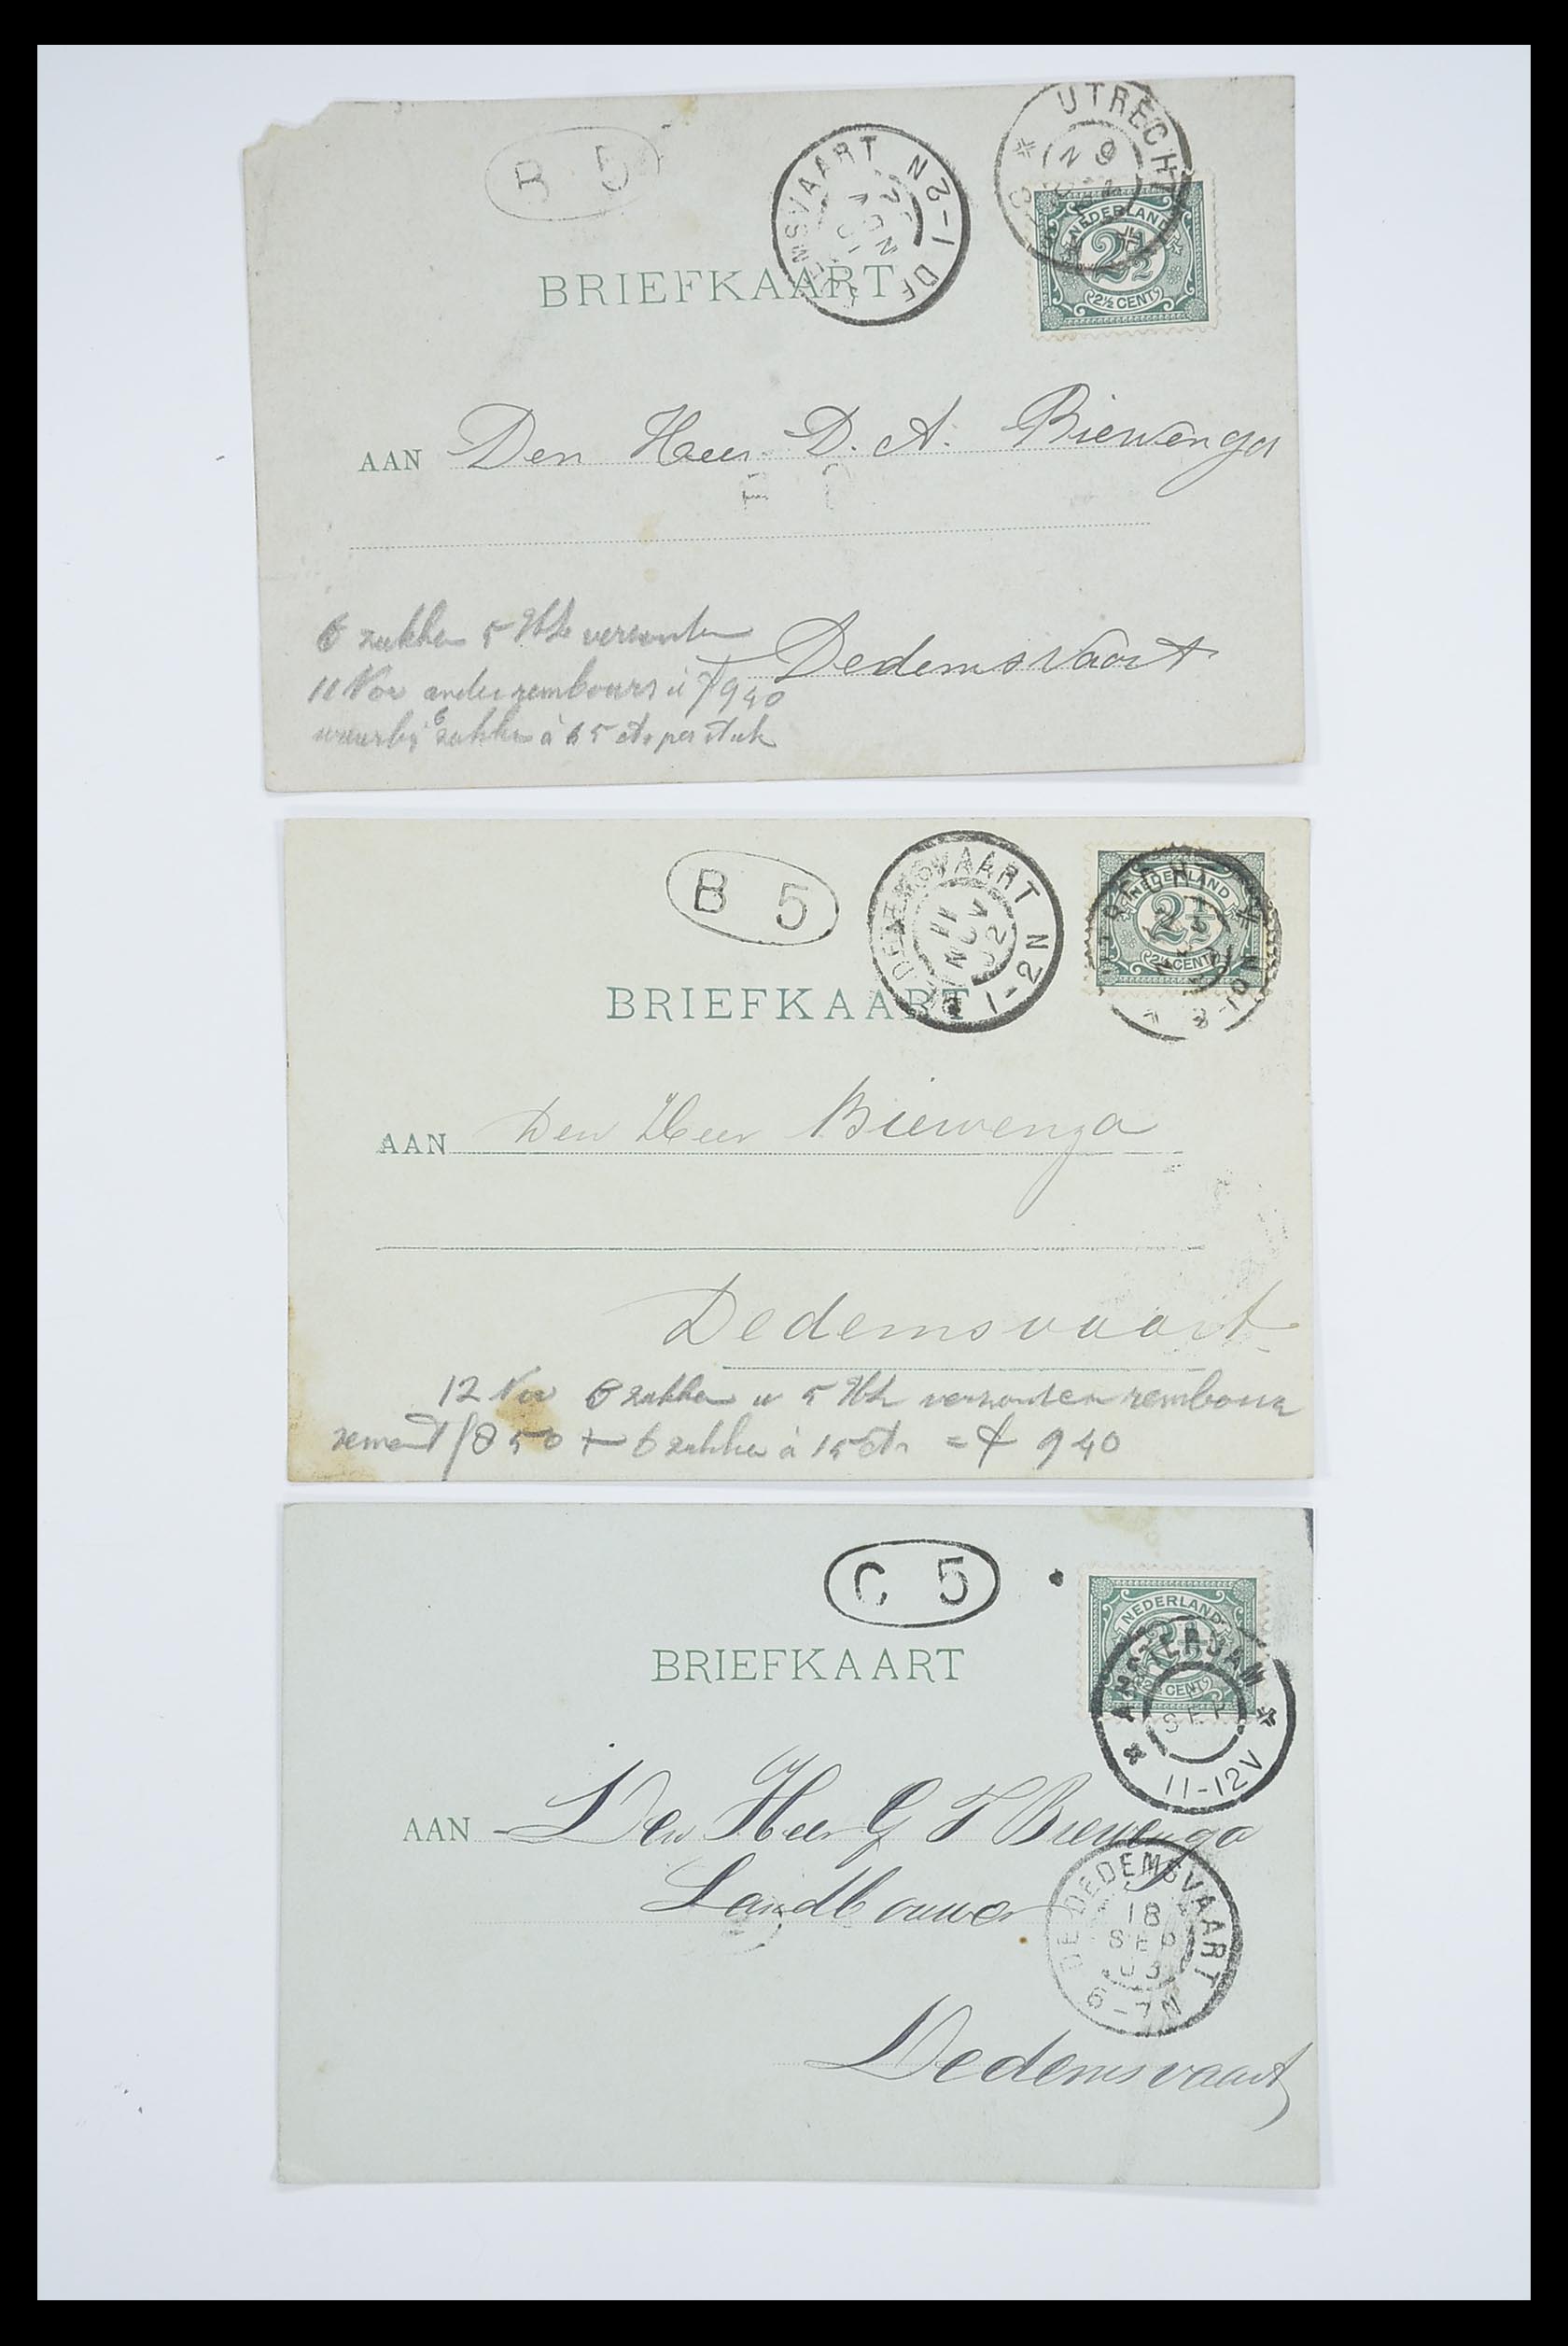 B 5
DEDEMSVAART 1-2N
NOV
UTRECHT
NEDERLAND
2½
2½ CENT
BRIEFKAART
AAN Den Heer D. A. Biewenga
Dedemsvaart
6 zakken 5 Hl verzonden
11 Nov onder rembours à f 9 40
waarbij 6 zakken à 15 cts per stuk
B 5
DEDEMSVAART 1-2N
11 NOV 02
NEDERLAND
2½
2½ CENT
8-10N
BRIEFKAART
AAN Den Heer Biewenga
Dedemsvaart
12 Nov 6 zakken 5 Hl verzonden rembour
sement f 8 50 + 6 zakken à 15 cts = f 9 40
C 5
NEDERLAND
2½
2½ CENT
AMSTERDAM
SEP
11-12V
BRIEFKAART
AAN Den Heer G T Biewenga
Landbouwer
DEDEMSVAART
18
SEP
03
6-7N
Dedemsvaart